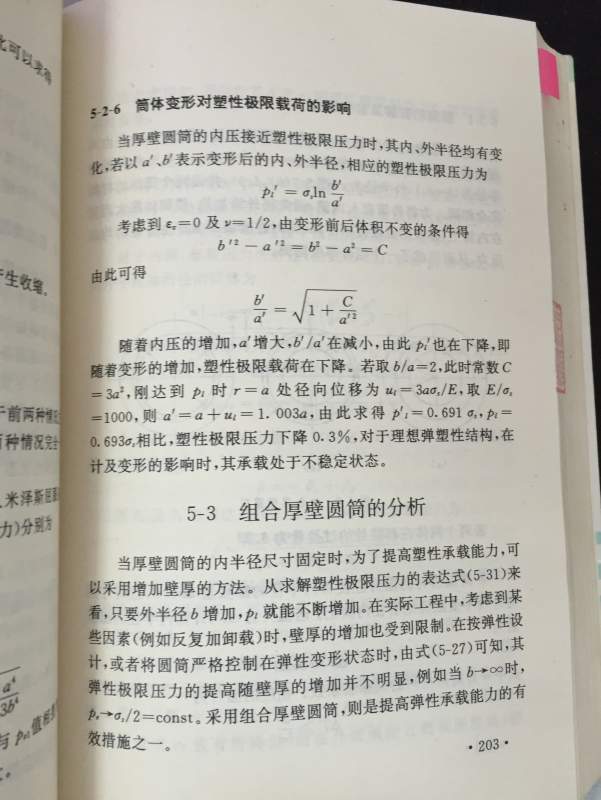 比可以求得
5-2-6 筒体变形对塑性极限载荷的影响
当厚壁圆筒的内压接近塑性极限压力时,其内、外半径均有变
化,若以 a′、b′表示变形后的内、外半径,相应的塑性极限压力为
pₗ′ = σₛln b′/a′
考虑到 εz=0 及 ν=1/2,由变形前后体积不变的条件得
b′² − a′² = b² − a² = C
由此可得
b′/a′ = √(1 + C/a′²)
随着内压的增加,a′增大,b′/a′在减小,由此 pₗ′也在下降,即
随着变形的增加,塑性极限载荷在下降。若取 b/a=2,此时常数 C
=3a²,刚达到 pₗ 时 r=a 处径向位移为 uₗ=3aσₛ/E,取 E/σₛ
=1000,则 a′=a+uₗ=1.003a,由此求得 p′ₗ=0.691 σₛ,pₗ=
0.693σₛ相比,塑性极限压力下降 0.3%,对于理想弹塑性结构,在
计及变形的影响时,其承载处于不稳定状态。
5-3 组合厚壁圆筒的分析
当厚壁圆筒的内半径尺寸固定时,为了提高塑性承载能力,可
以采用增加壁厚的方法。从求解塑性极限压力的表达式(5-31)来
看,只要外半径 b 增加,pₗ 就能不断增加。在实际工程中,考虑到某
些因素(例如反复加卸载)时,壁厚的增加也受到限制。在按弹性设
计,或者将圆筒严格控制在弹性变形状态时,由式(5-27)可知,其
弹性极限压力的提高随壁厚的增加并不明显,例如当 b→∞时,
pₑ→σₛ/2=const。采用组合厚壁圆筒,则是提高弹性承载能力的有
效措施之一。
·203·
产生收缩。
于前两种情况
两种情况完全
米泽斯屈服
力)分别为
a⁴
3b⁴
值相差